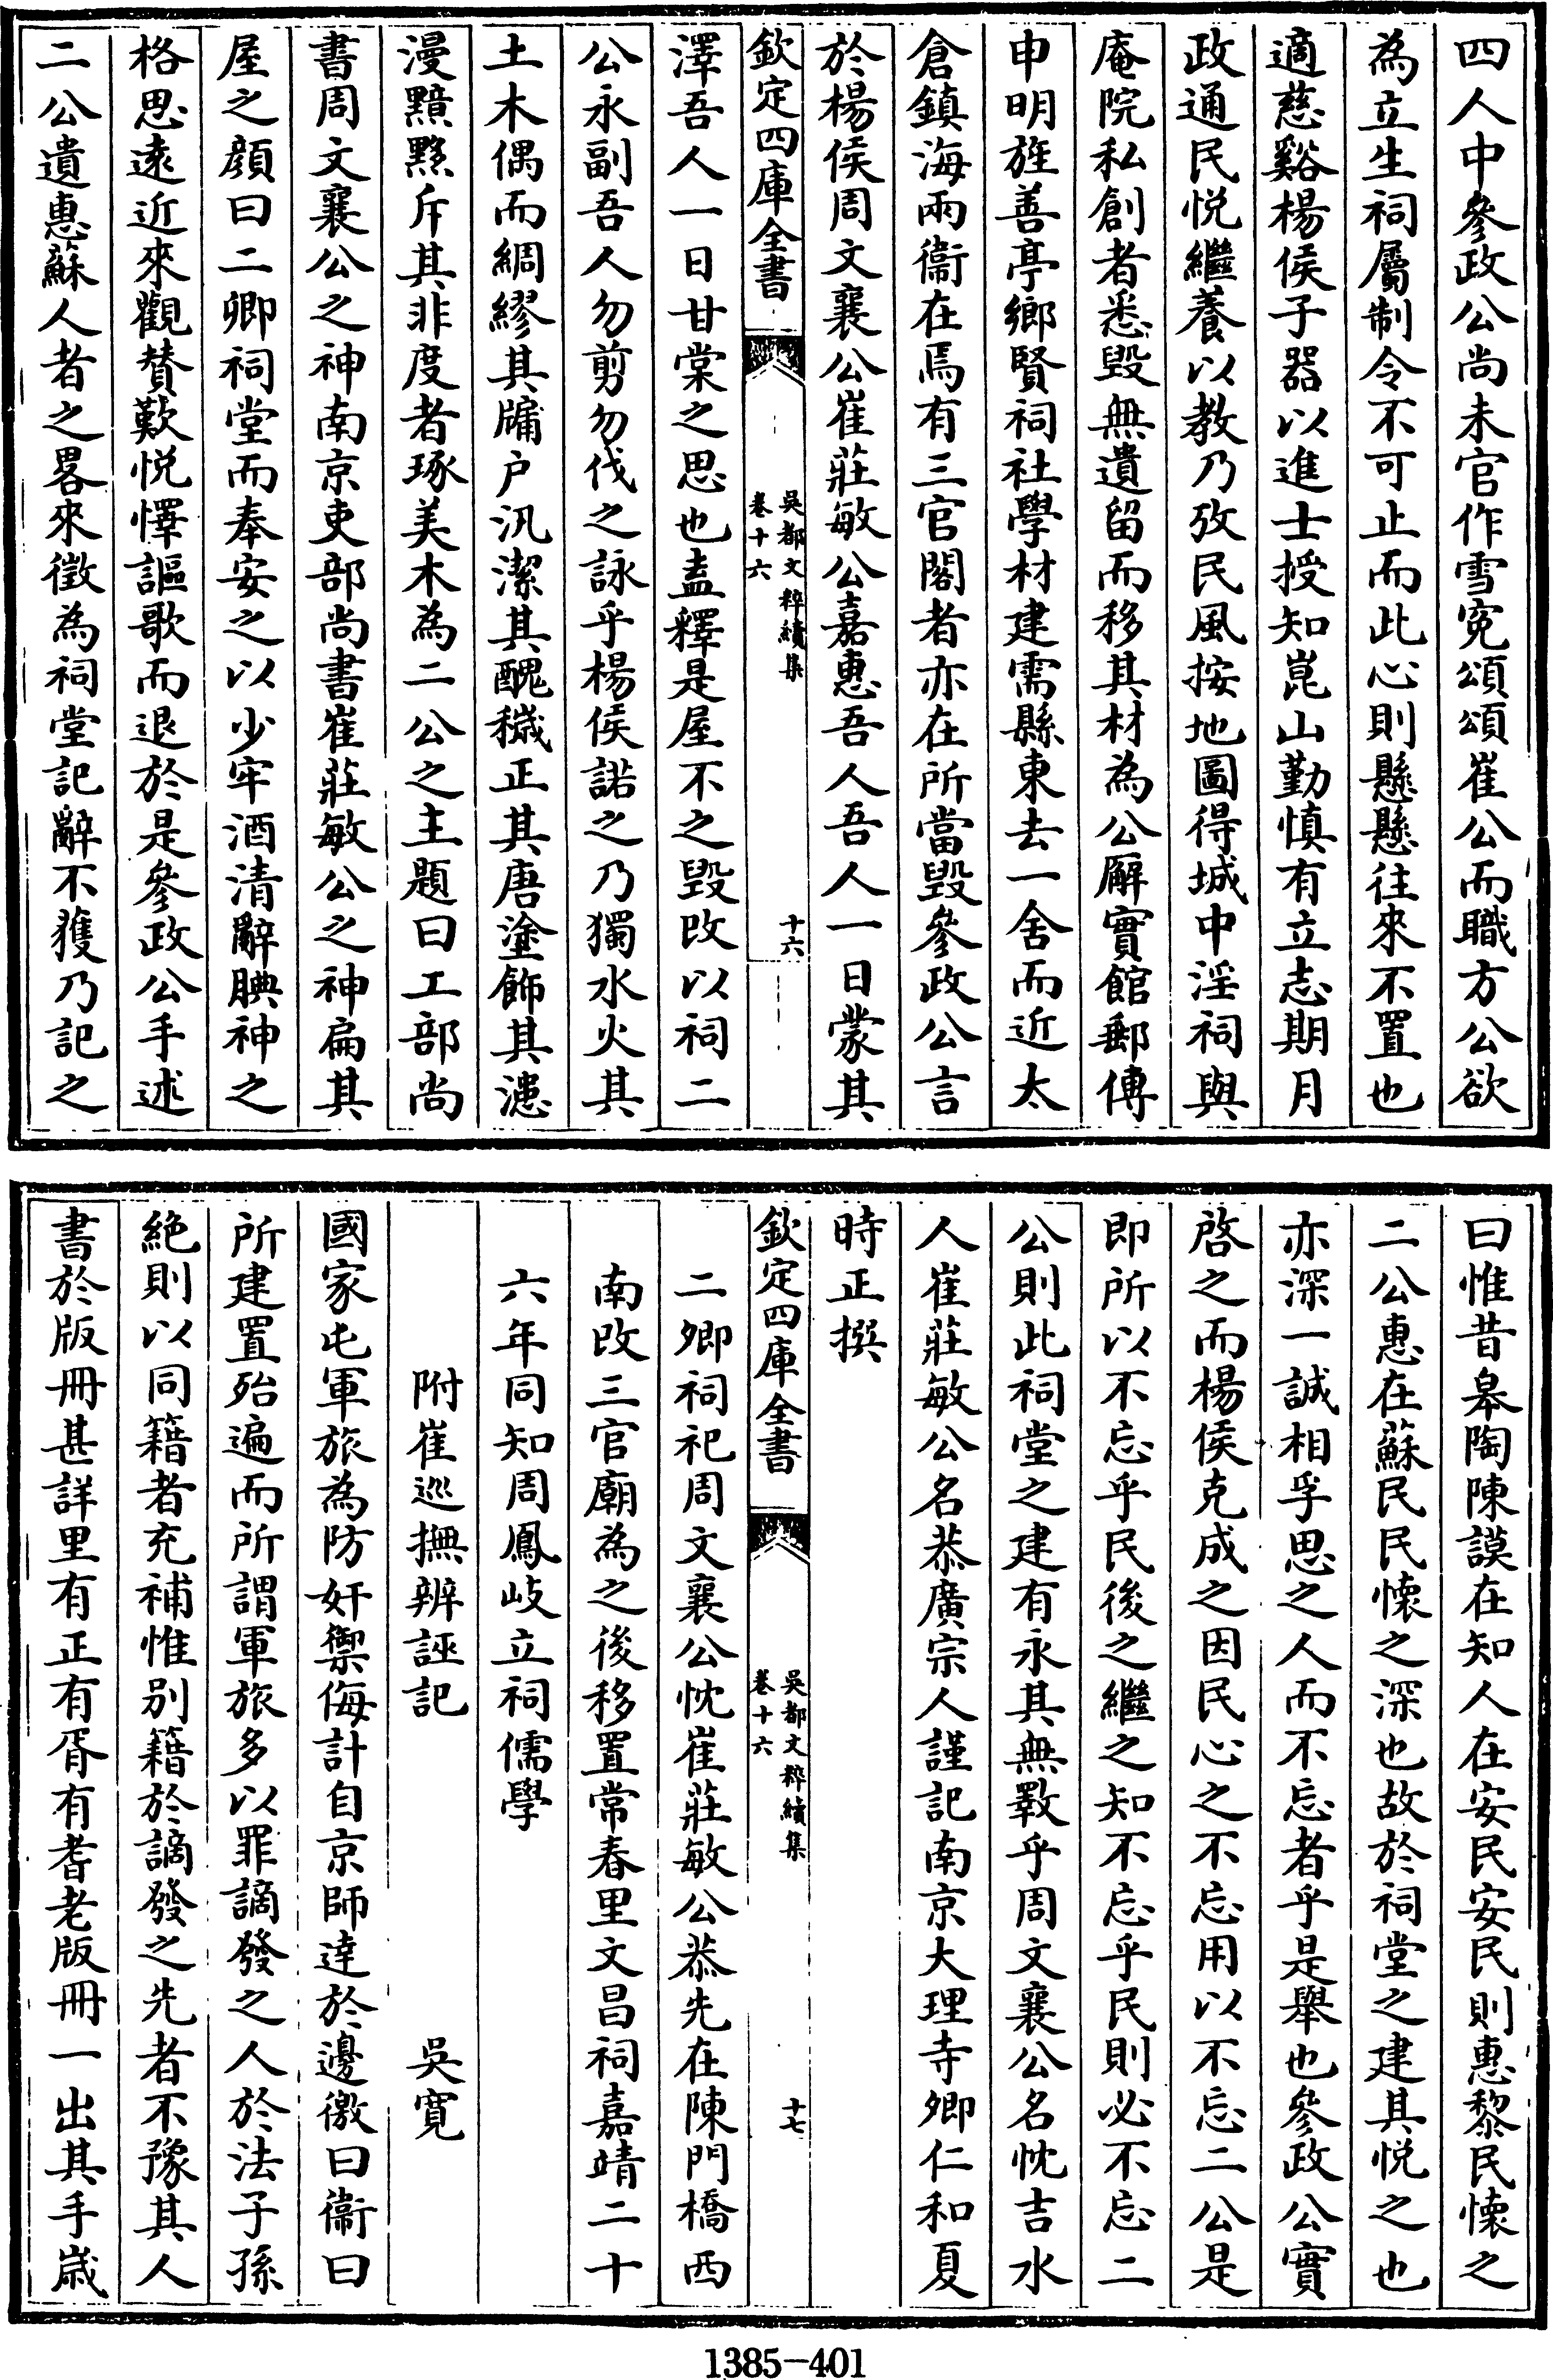 四人中參政公尚未官作雪寃頌頌崔公而職方公欲
為立生祠屬制令不可止而此心則懸懸往來不置也
適慈谿楊侯子器以進士授知崑山勤慎有立志期月
政通民悦繼養以教乃攷民風按地圖得城中淫祠與
庵院私創者悉毀無遺留而移其材為公廨實館郵傳
申明旌善亭鄉賢祠社學材建需縣東去一舍而近太
倉鎮海兩衞在焉有三官閣者亦在所當毀參政公言
於楊侯周文襄公崔莊敏公嘉惠吾人吾人一日蒙其
欽定四庫全書
吳都文粹續集
卷十六
十六
澤吾人一日甘棠之思也盍釋是屋不之毀改以祠二
公永副吾人勿剪勿伐之詠乎楊侯諾之乃獨水火其
土木偶而綢繆其牖户汛潔其醜穢正其唐塗飾其漶
漫黯黟斥其非度者琢美木為二公之主題曰工部尚
書周文襄公之神南京吏部尚書崔莊敏公之神扁其
屋之顔曰二卿祠堂而奉安之以少牢酒清辭腆神之
格思遠近來觀賛歎悦懌謳歌而退於是參政公手述
二公遺惠蘇人者之畧來徵為祠堂記辭不獲乃記之
曰惟昔皋陶陳謨在知人在安民安民則惠黎民懷之
二公惠在蘇民民懷之深也故於祠堂之建其悦之也
亦深一誠相孚思之人而不忘者乎是舉也參政公實
啓之而楊侯克成之因民心之不忘用以不忘二公是
即所以不忘乎民後之繼之知不忘乎民則必不忘二
公則此祠堂之建有永其無斁乎周文襄公名忱吉水
人崔莊敏公名恭廣宗人謹記南京大理寺卿仁和夏
時正撰
欽定四庫全書
吳都文粹續集
卷十六
十七
二卿祠祀周文襄公忱崔莊敏公恭先在陳門橋西
南改三官廟為之後移置常春里文昌祠嘉靖二十
六年同知周鳳岐立祠儒學
附崔巡撫辨誣記 吳寛
國家屯軍旅為防奸禦侮計自京師達於邊徼曰衞曰
所建置殆遍而所謂軍旅多以罪謫發之人於法子孫
絶則以同籍者充補惟别籍於謫發之先者不豫其人
書於版冊甚詳里有正有胥有耆老版冊一出其手歲
1385-401